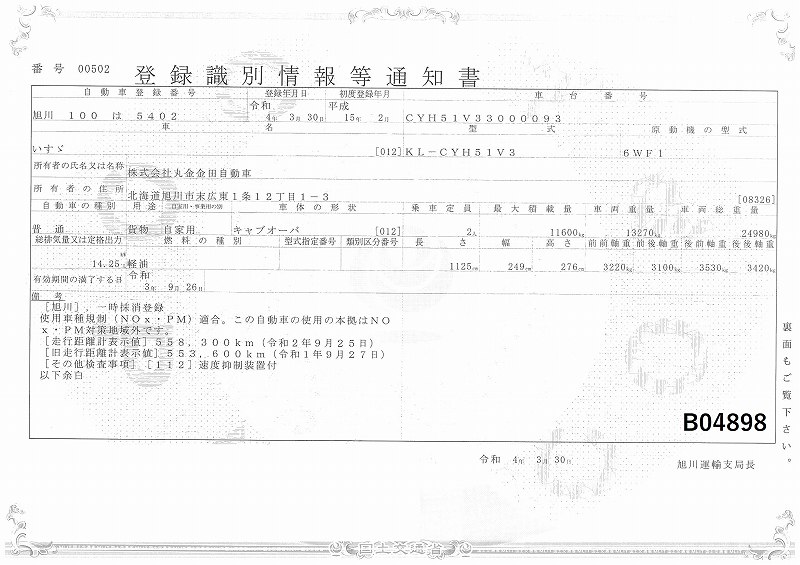 番号 00502 登録識別情報等通知書
自動車登録番号 登録年月日 初度登録年月 車台番号
旭川 100 は 5402 令和 4年 3月 30日 平成 15年 2月 CYH51V33000093
車名 型式 原動機の型式
いすゞ [012] KL-CYH51V3 6WF1
所有者の氏名又は名称 株式会社丸金金田自動車
所有者の住所 北海道旭川市末広東1条12丁目1-3 [08326]
自動車の種別 用途 自家用・事業用の別 車体の形状 乗車定員 最大積載量 車両重量 車両総重量
普通 貨物 自家用 キャブオーバ [012] 2人 11600kg 13270kg 24980kg
総排気量又は定格出力 燃料の種別 型式指定番号 類別区分番号 長さ 幅 高さ 前前軸重 前後軸重 後前軸重 後後軸重
14.25 軽油 1125cm 249cm 276cm 3220kg 3100kg 3530kg 3420kg
有効期間の満了する日 令和 3年 9月 26日
備考
[旭川],一時抹消登録
使用車種規制(NOx・PM)適合。この自動車の使用の本拠はNO
x・PM対策地域外です。
[走行距離計表示値]558,300km(令和2年9月25日)
[旧走行距離計表示値]553,600km(令和1年9月27日)
[その他検査事項][112]速度抑制装置付
以下余白
裏面もご覧下さい。
B04898
令和 4年 3月 30日 旭川運輸支局長
国土交通省